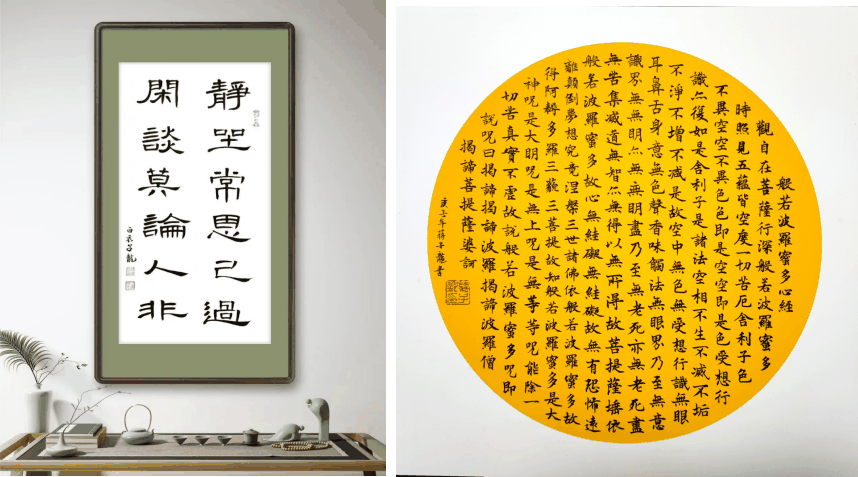 靜坐常思己過
閑談莫論人非
白衣子龍
般若波羅蜜多心經
觀自在菩薩行深般若波羅蜜多
時照見五蘊皆空度一切苦厄舍利子色
不異空空不異色色即是空空即是色受想行
識亦復如是舍利子是諸法空相不生不滅不垢
不淨不增不減是故空中無色無受想行識無眼
耳鼻舌身意無色聲香味觸法無眼界乃至無意
識界無無明亦無無明盡乃至無老死亦無老死盡
無苦集滅道無智亦無得以無所得故菩提薩埵依
般若波羅蜜多故心無絓礙無絓礙故無有恐怖遠
離顛倒夢想究竟涅槃三世諸佛依般若波羅蜜多故
得阿耨多羅三藐三菩提故知般若波羅蜜多是大
神咒是大明咒是無上咒是無等等咒能除一
切苦真實不虛故說般若波羅蜜多咒即
說咒曰揭諦揭諦波羅揭諦波羅僧
揭諦菩提薩婆訶